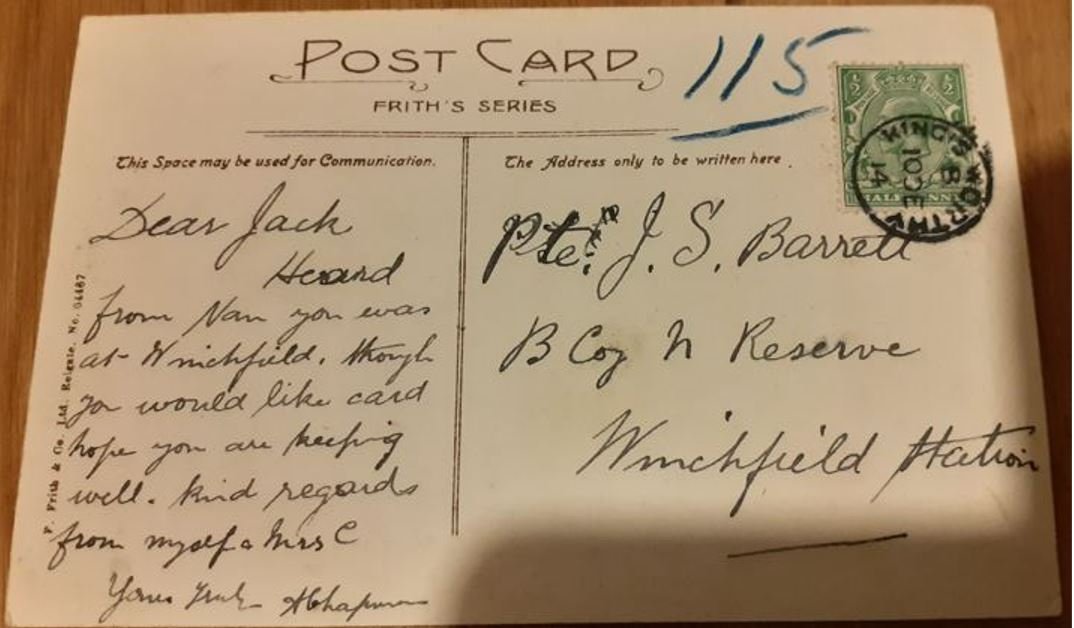 POST CARD
FRITH'S SERIES
115
½ ½
KING'S WORTHY
B
10 DE
14
This Space may be used for Communication.
The Address only to be written here.
Dear Jack
Heard
from Nan you was
at Winchfield. though
you would like card
hope you are keeping
well. kind regards
from myself & Mrs C
Yours Truly AChapman
Pte. J. S. Barrett
B Coy N Reserve
Winchfield Station
F. Frith & Co. Ltd. Reigate. No. 64467